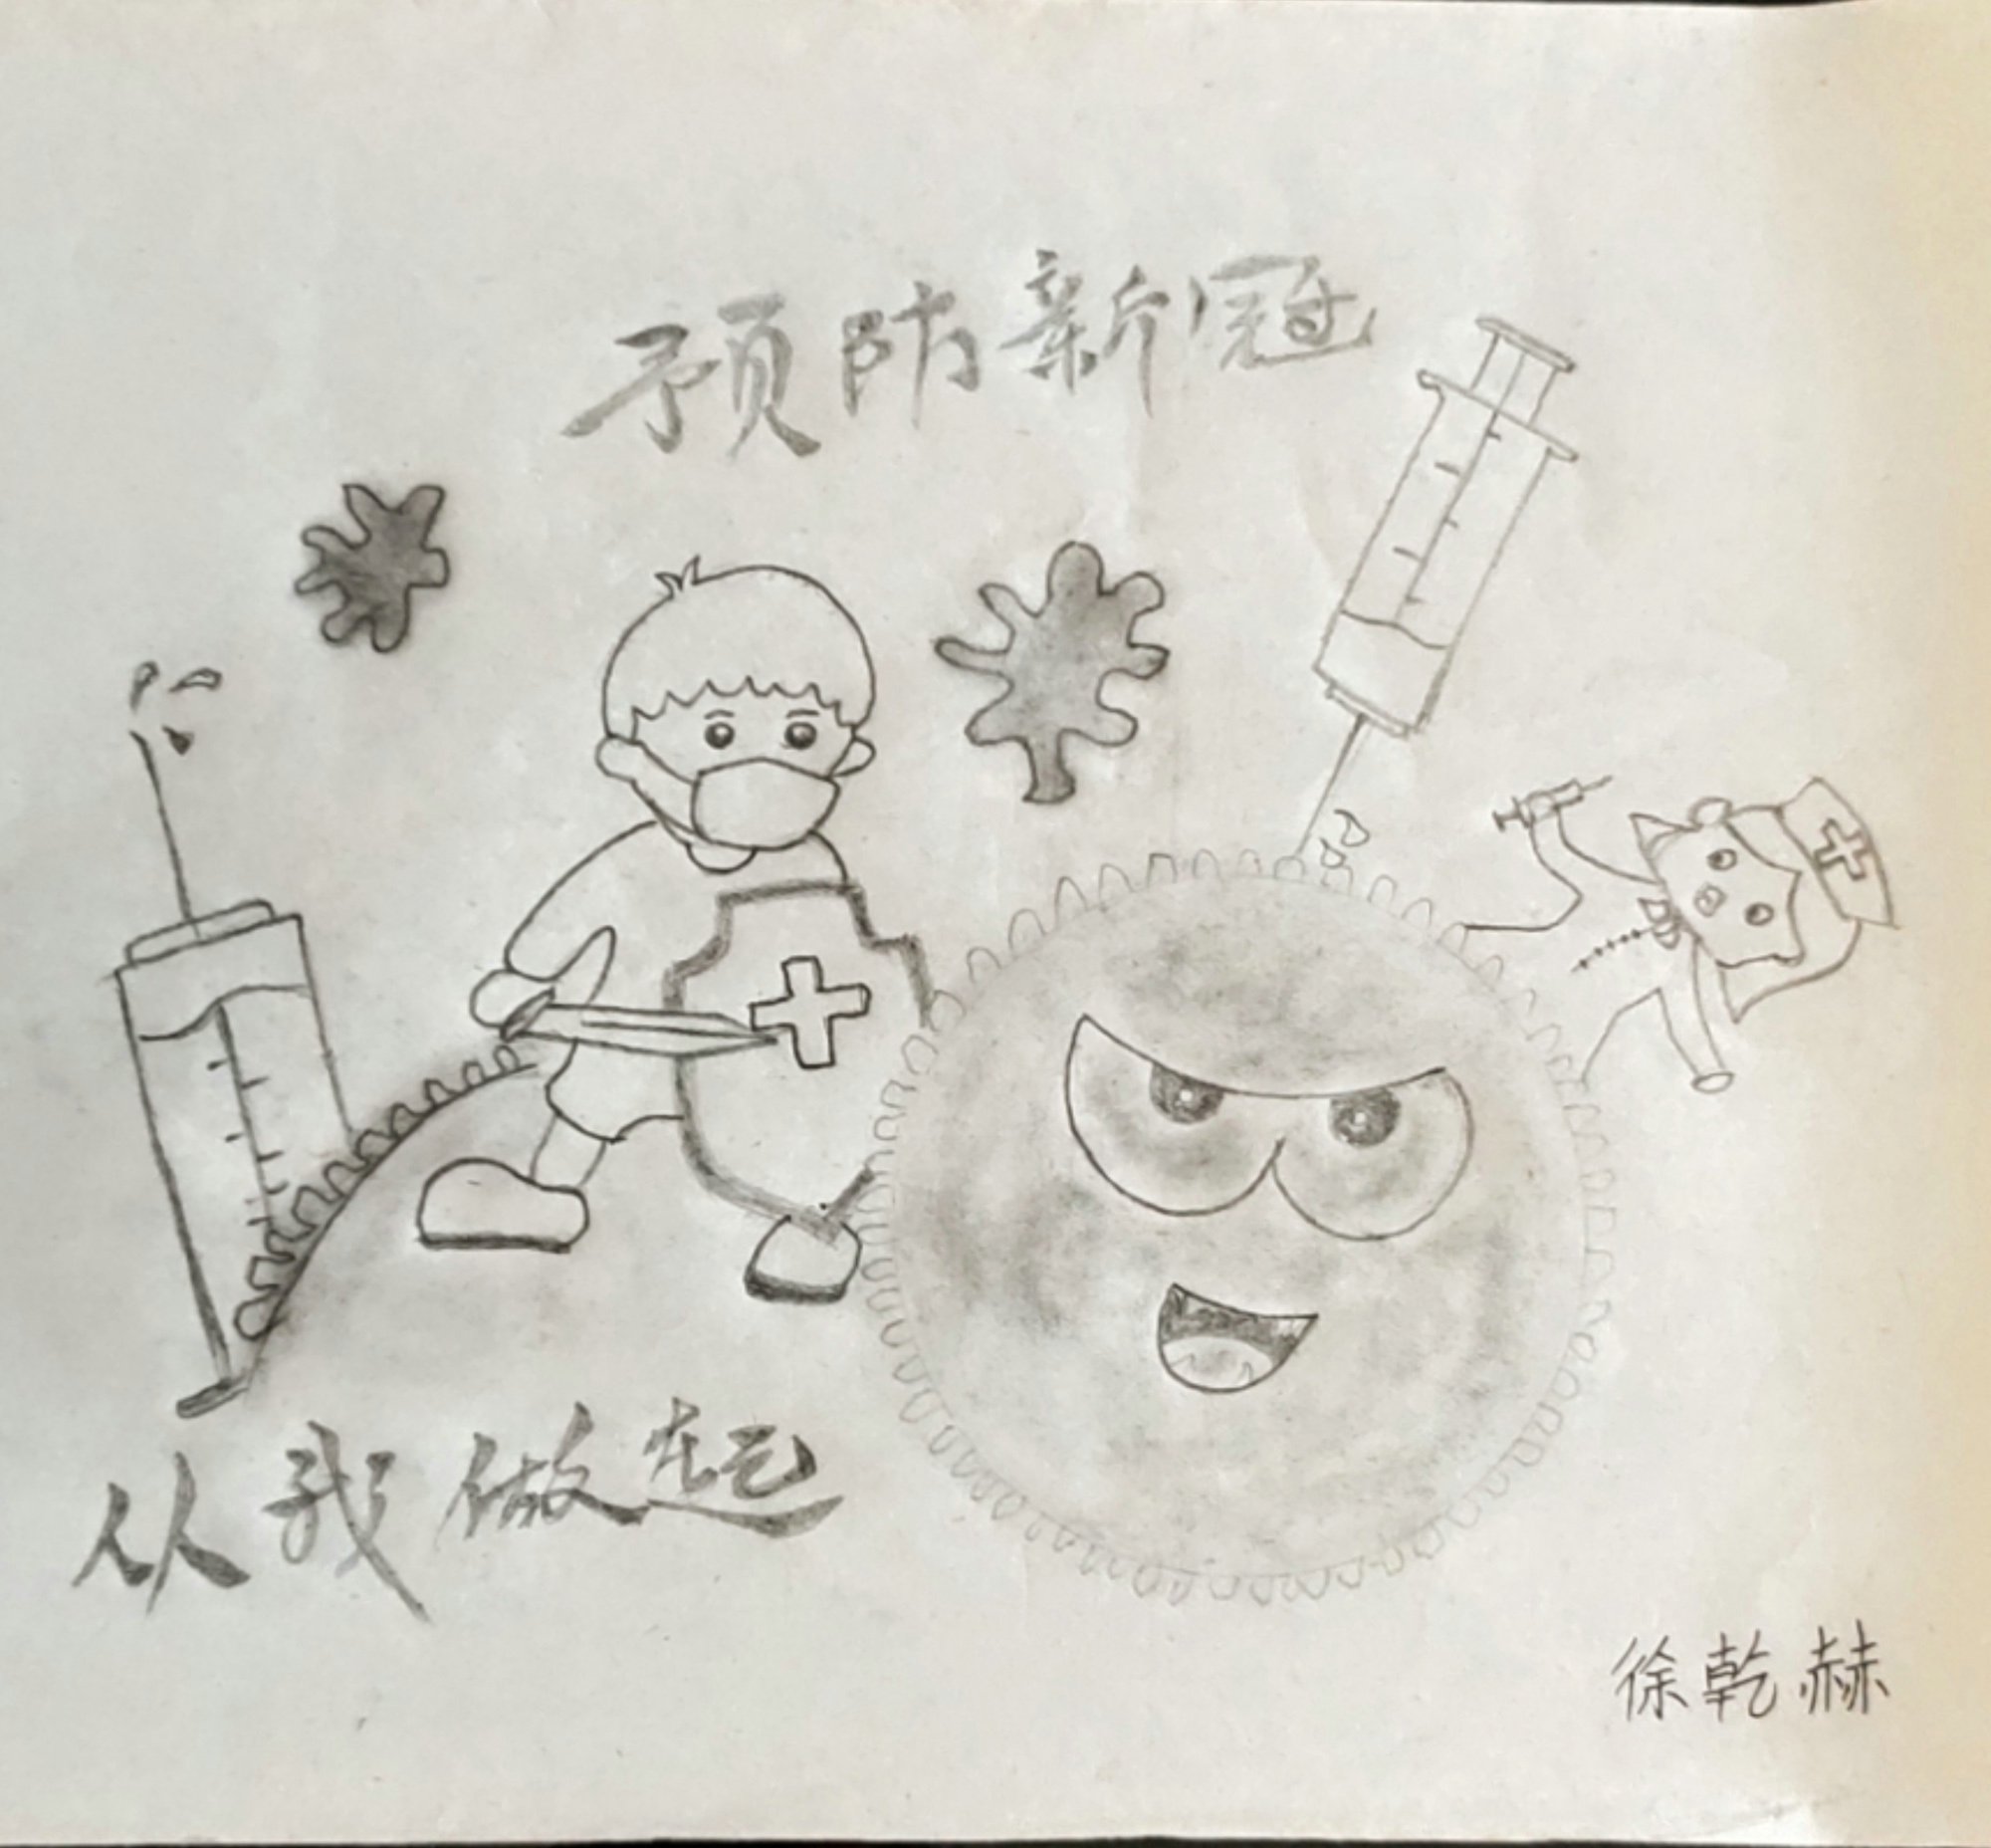 预防新冠
从我做起
徐乾赫